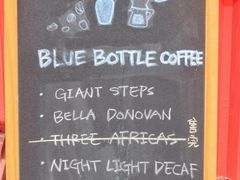 BLUE BOTTLE COFFEE
· GIANT STEPS
· BELLA DONOVAN
· THREE AFRICAS
· NIGHT LIGHT DECAF